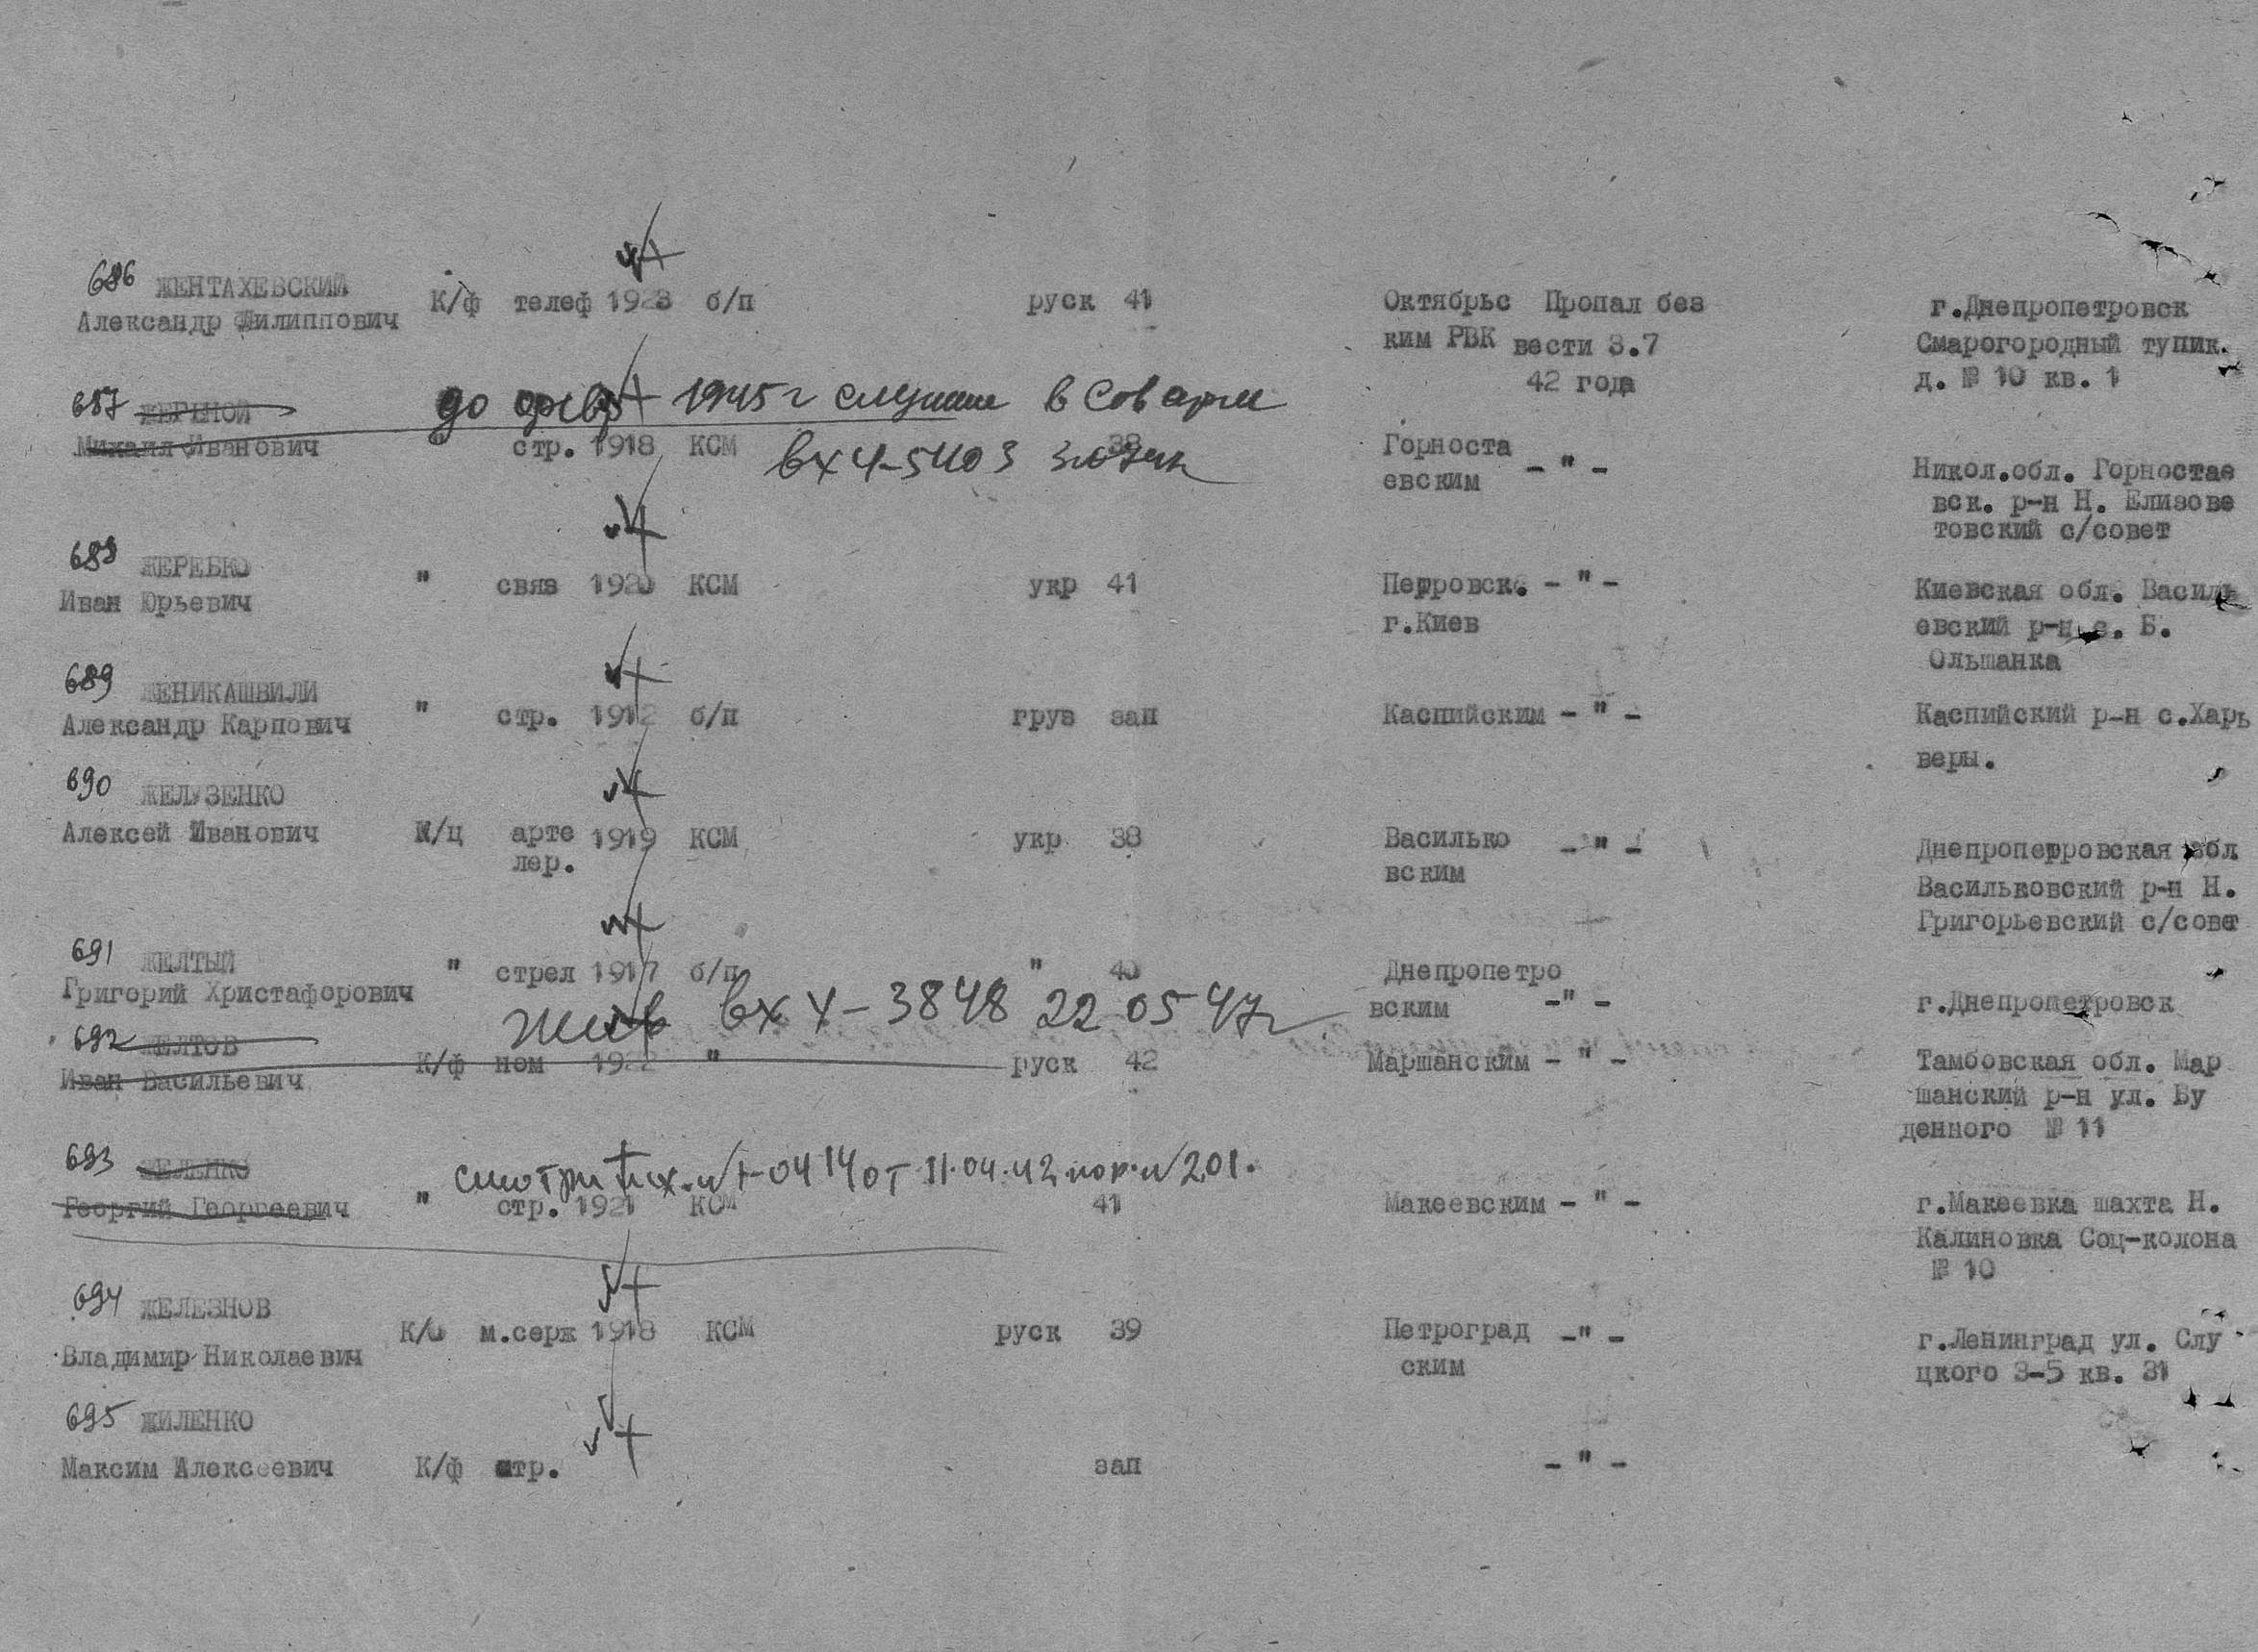 686 ЖЕНТАХЕВСКИЙ
Александр Филиппович К/ф телеф 1923 б/п руск 41 Октябрьс Пропал без г.Днепропетровск
ким РВК вести 8.7 Смарогородный тупик.
42 года д. № 10 кв. 1
687 до февр 1945 г служил в Сов арм
Михаил Иванович стр. 1918 КСМ 38 Горноста
вх 4-5403
евским - " - Никол.обл. Горностае
вск. р-н Н. Елизове
товский с/совет
688 ЖЕРЕБКО
Иван Юрьевич " связ 1920 КСМ укр 41 Петровск. - " - Киевская обл. Василь
г.Киев евский р-н с. Б.
Ольшанка
689 ЖЕНИКАШВИЛИ
Александр Карпович " стр. 1912 б/п груз зап Каспийским - " - Каспийский р-н с.Харь
веры.
690 ЖЕЛУЗЕНКО
Алексей Иванович М/ц арте 1919 КСМ укр 38 Василько - " - Днепропетровская обл
лер. вским Васильковский р-н Н.
Григорьевский с/совет
691 ЖЕЛТЫЙ
Григорий Христафорович " стрел 1917 б/п " 40 Днепропетро
вским -"- г.Днепропетровск
жив вх 4-3848 22 05 47г
692 ЖЕЛТОВ
Иван Васильевич К/ф ном 1922 " руск 42 Маршанским - " - Тамбовская обл. Мар
шанский р-н ул. Бу
денного № 11
693 ЖЕЛЕНКО смотри исх.н/т-0414 от 11.04.42 пор.н/201.
Георгий Георгеевич " стр. 1921 КСМ 41 Макеевским - " - г.Макеевка шахта Н.
Калиновка Соц-колона
№ 10
694 ЖЕЛЕЗНОВ
Владимир Николаевич м.серж 1918 КСМ руск 39 Петроград -"- г.Ленинград ул. Слу
ским цкого 3-5 кв. 31
695 ЖИЛЕНКО
Максим Алексеевич К/ф стр. зап - " -